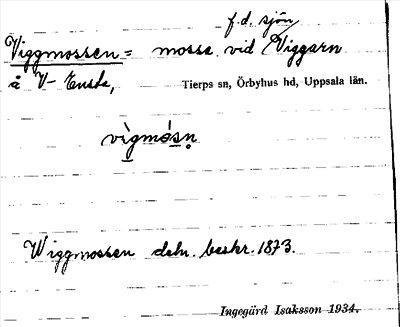 f.d. sjön
Viggmossen = mosse vid Viggarn
å V- Ensta, Tierps sn, Örbyhus hd, Uppsala län.
vìgmósn̥
Wiggmossen deln. beskr. 1873.
Ingegärd Isaksson 1934.